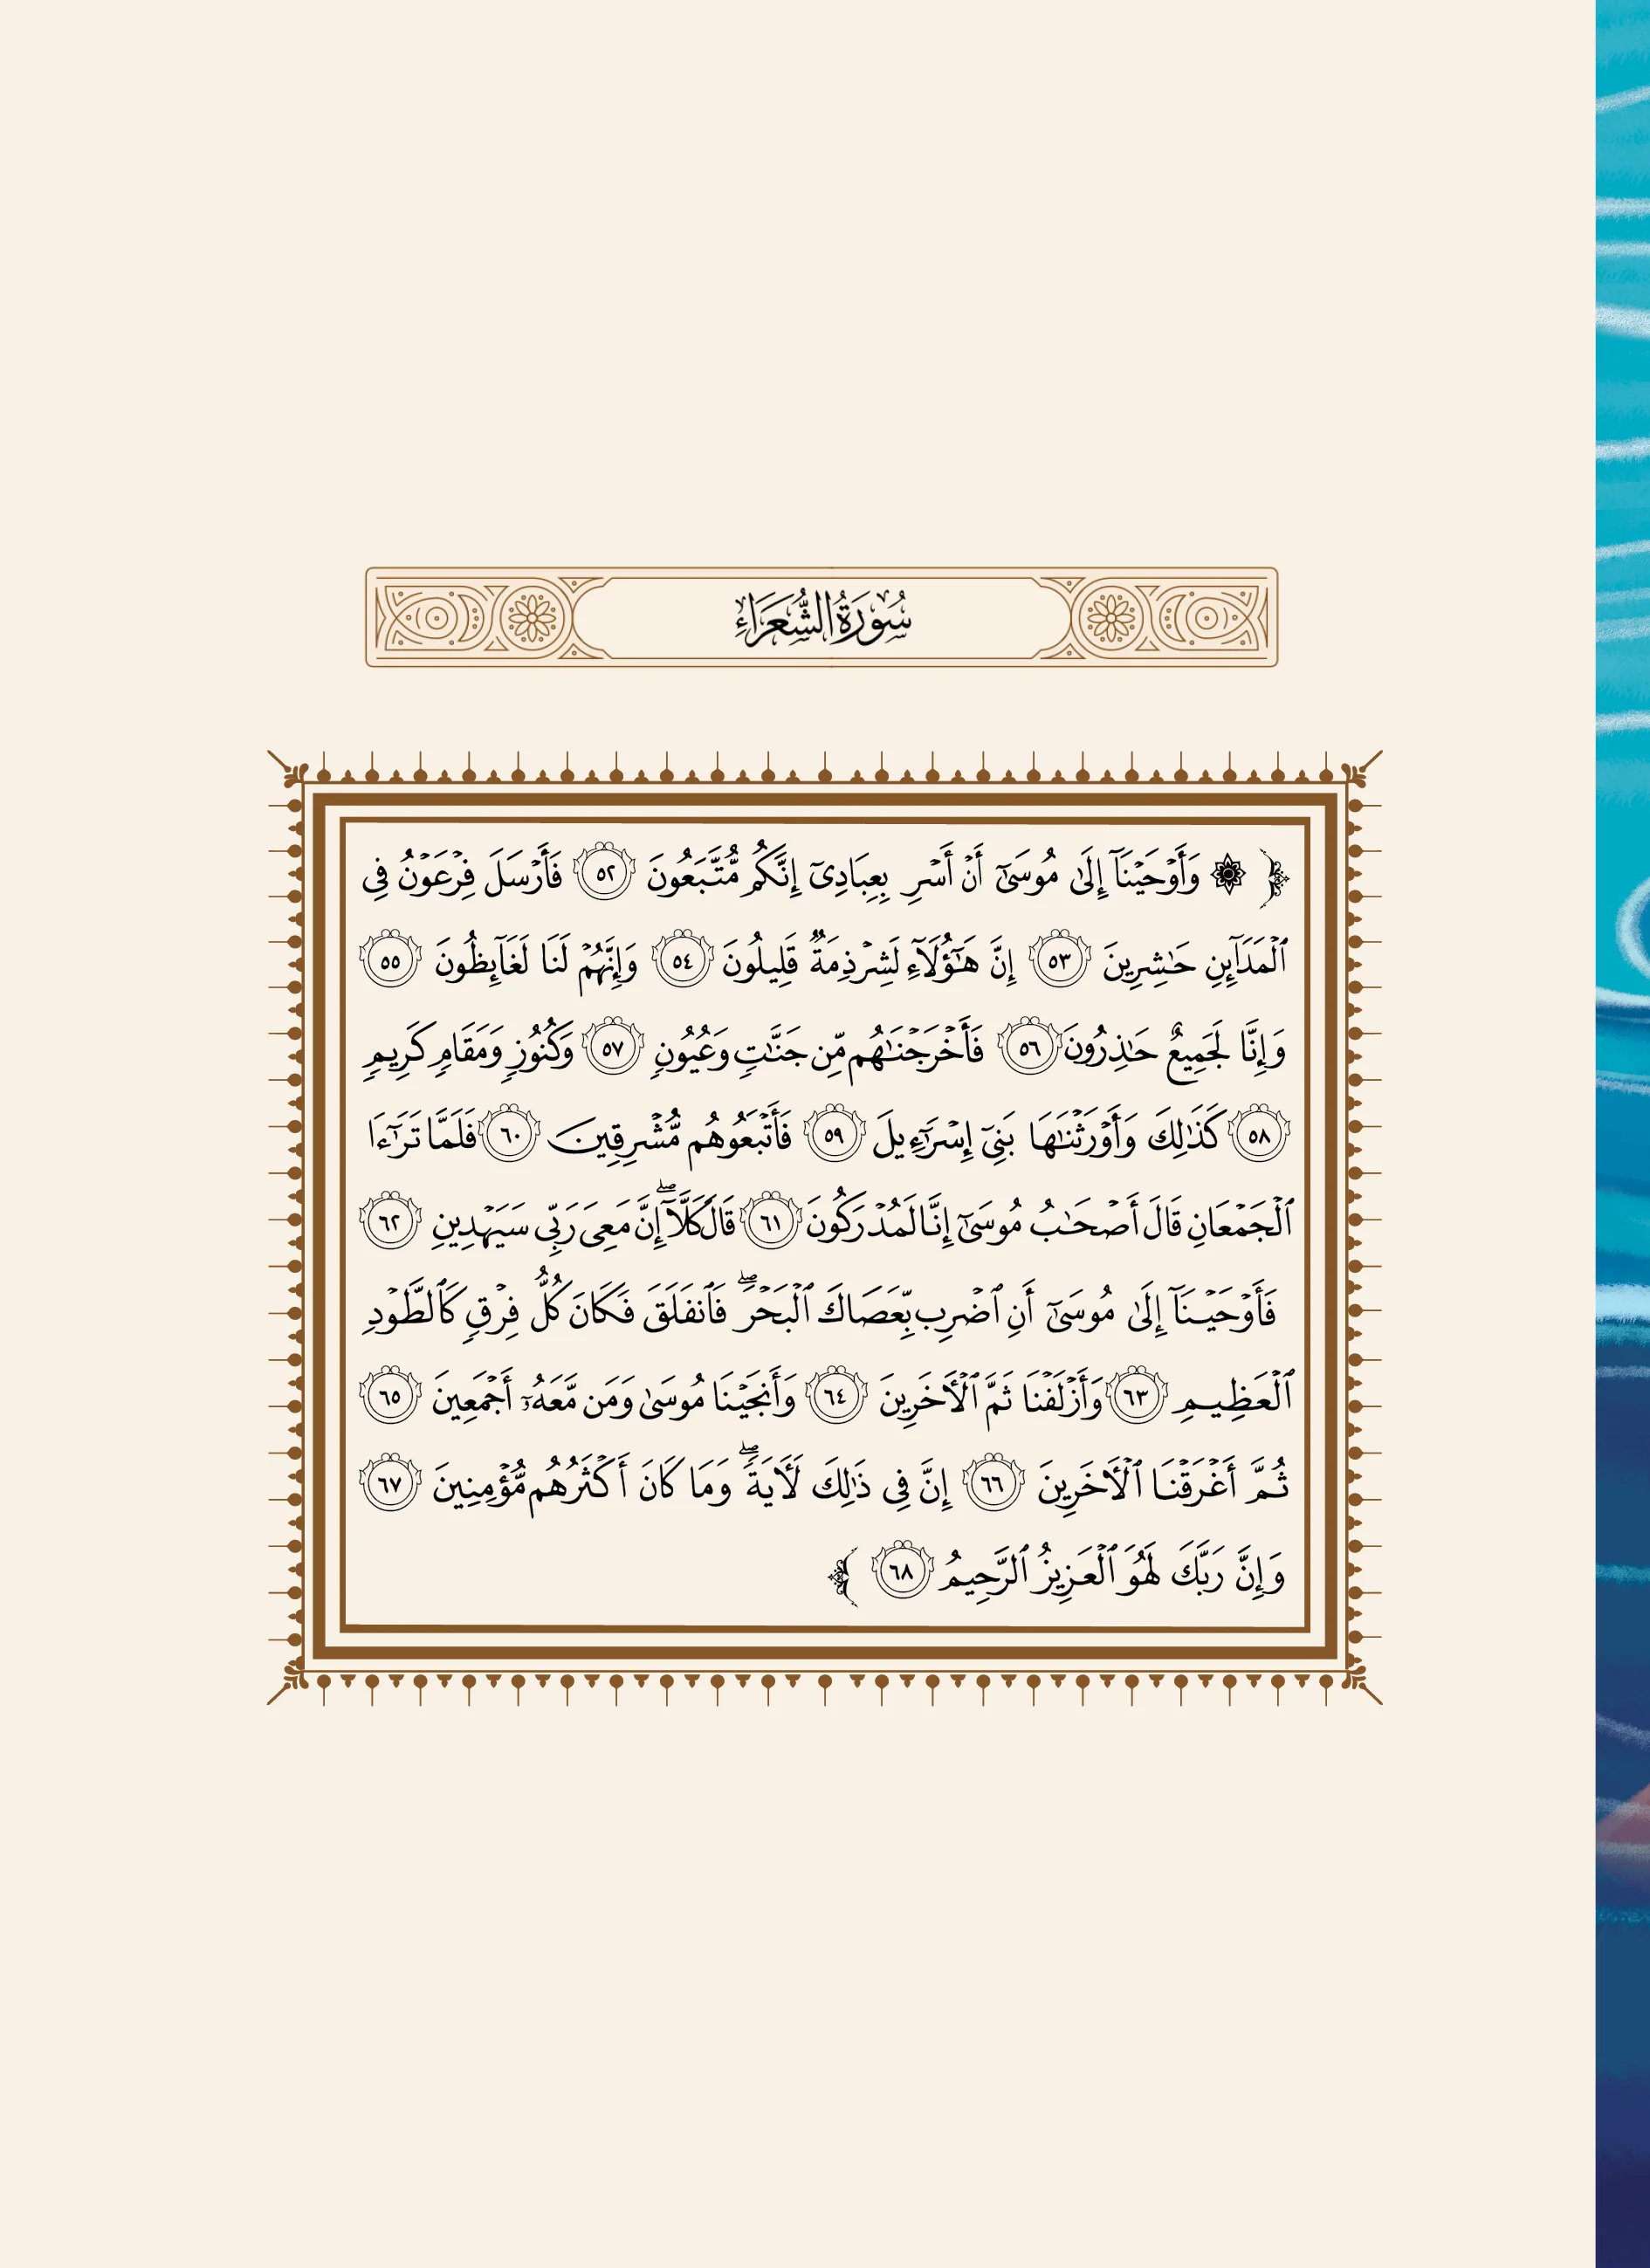 سُورَةُ الشُّعَرَاءِ
﴿ ۞ وَأَوْحَيْنَآ إِلَىٰ مُوسَىٰٓ أَنْ أَسْرِ بِعِبَادِىٓ إِنَّكُم مُّتَّبَعُونَ ٥٢ فَأَرْسَلَ فِرْعَوْنُ فِى
ٱلْمَدَآئِنِ حَـٰشِرِينَ ٥٣ إِنَّ هَـٰٓؤُلَآءِ لَشِرْذِمَةٌ قَلِيلُونَ ٥٤ وَإِنَّهُمْ لَنَا لَغَآئِظُونَ ٥٥
وَإِنَّا لَجَمِيعٌ حَـٰذِرُونَ ٥٦ فَأَخْرَجْنَـٰهُم مِّن جَنَّـٰتٍ وَعُيُونٍ ٥٧ وَكُنُوزٍ وَمَقَامٍ كَرِيمٍ
٥٨ كَذَٰلِكَ وَأَوْرَثْنَـٰهَا بَنِىٓ إِسْرَٰٓءِيلَ ٥٩ فَأَتْبَعُوهُم مُّشْرِقِينَ ٦٠ فَلَمَّا تَرَٰٓءَا
ٱلْجَمْعَانِ قَالَ أَصْحَـٰبُ مُوسَىٰٓ إِنَّا لَمُدْرَكُونَ ٦١ قَالَ كَلَّآ ۖ إِنَّ مَعِىَ رَبِّى سَيَهْدِينِ ٦٢
فَأَوْحَيْنَآ إِلَىٰ مُوسَىٰٓ أَنِ ٱضْرِب بِّعَصَاكَ ٱلْبَحْرَ ۖ فَٱنفَلَقَ فَكَانَ كُلُّ فِرْقٍ كَٱلطَّوْدِ
ٱلْعَظِيمِ ٦٣ وَأَزْلَفْنَا ثَمَّ ٱلْـَٔاخَرِينَ ٦٤ وَأَنجَيْنَا مُوسَىٰ وَمَن مَّعَهُۥٓ أَجْمَعِينَ ٦٥
ثُمَّ أَغْرَقْنَا ٱلْـَٔاخَرِينَ ٦٦ إِنَّ فِى ذَٰلِكَ لَـَٔايَةً ۖ وَمَا كَانَ أَكْثَرُهُم مُّؤْمِنِينَ ٦٧
وَإِنَّ رَبَّكَ لَهُوَ ٱلْعَزِيزُ ٱلرَّحِيمُ ٦٨ ﴾